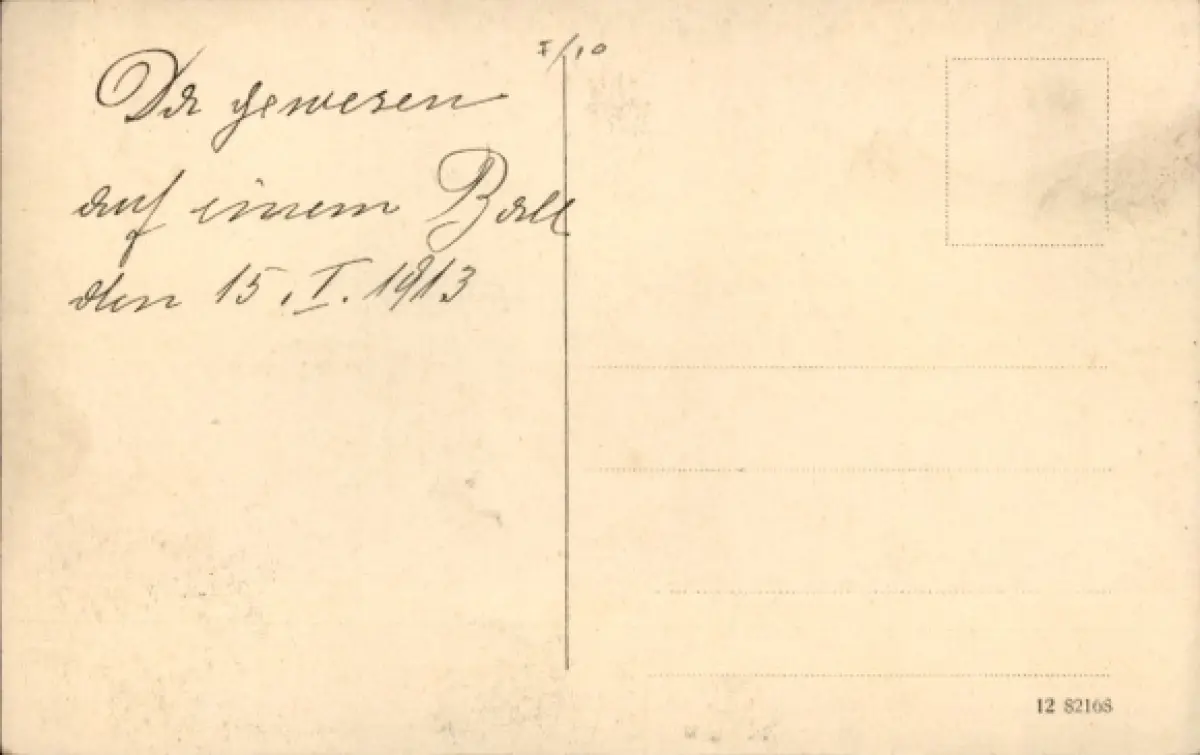 I/10
Da gewesen
auf einem Ball
den 15. I. 1913
12 82168